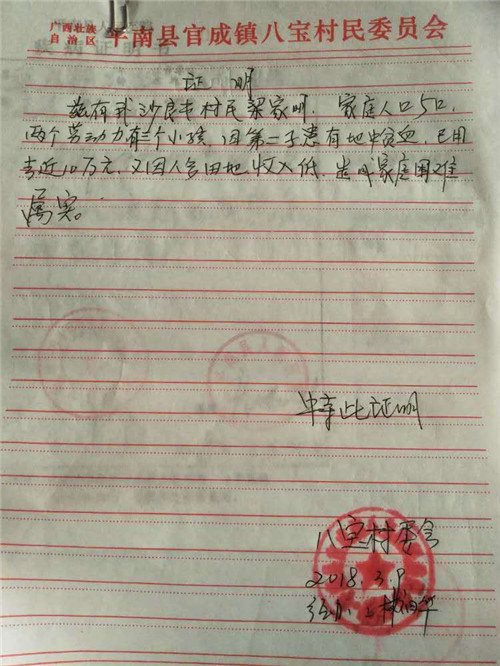 广西壮族
自治区 平南县官成镇八宝村民委员会
证明
兹有我沙良屯村民梁家明,家庭人口5口,
两个劳动力有三个小孩,因第二子患有地中贫血,已用
去近10万元,又因人多田地收入低,造成家庭困难
属实。
特此证明
八宝村委会
2018.3.9
经办